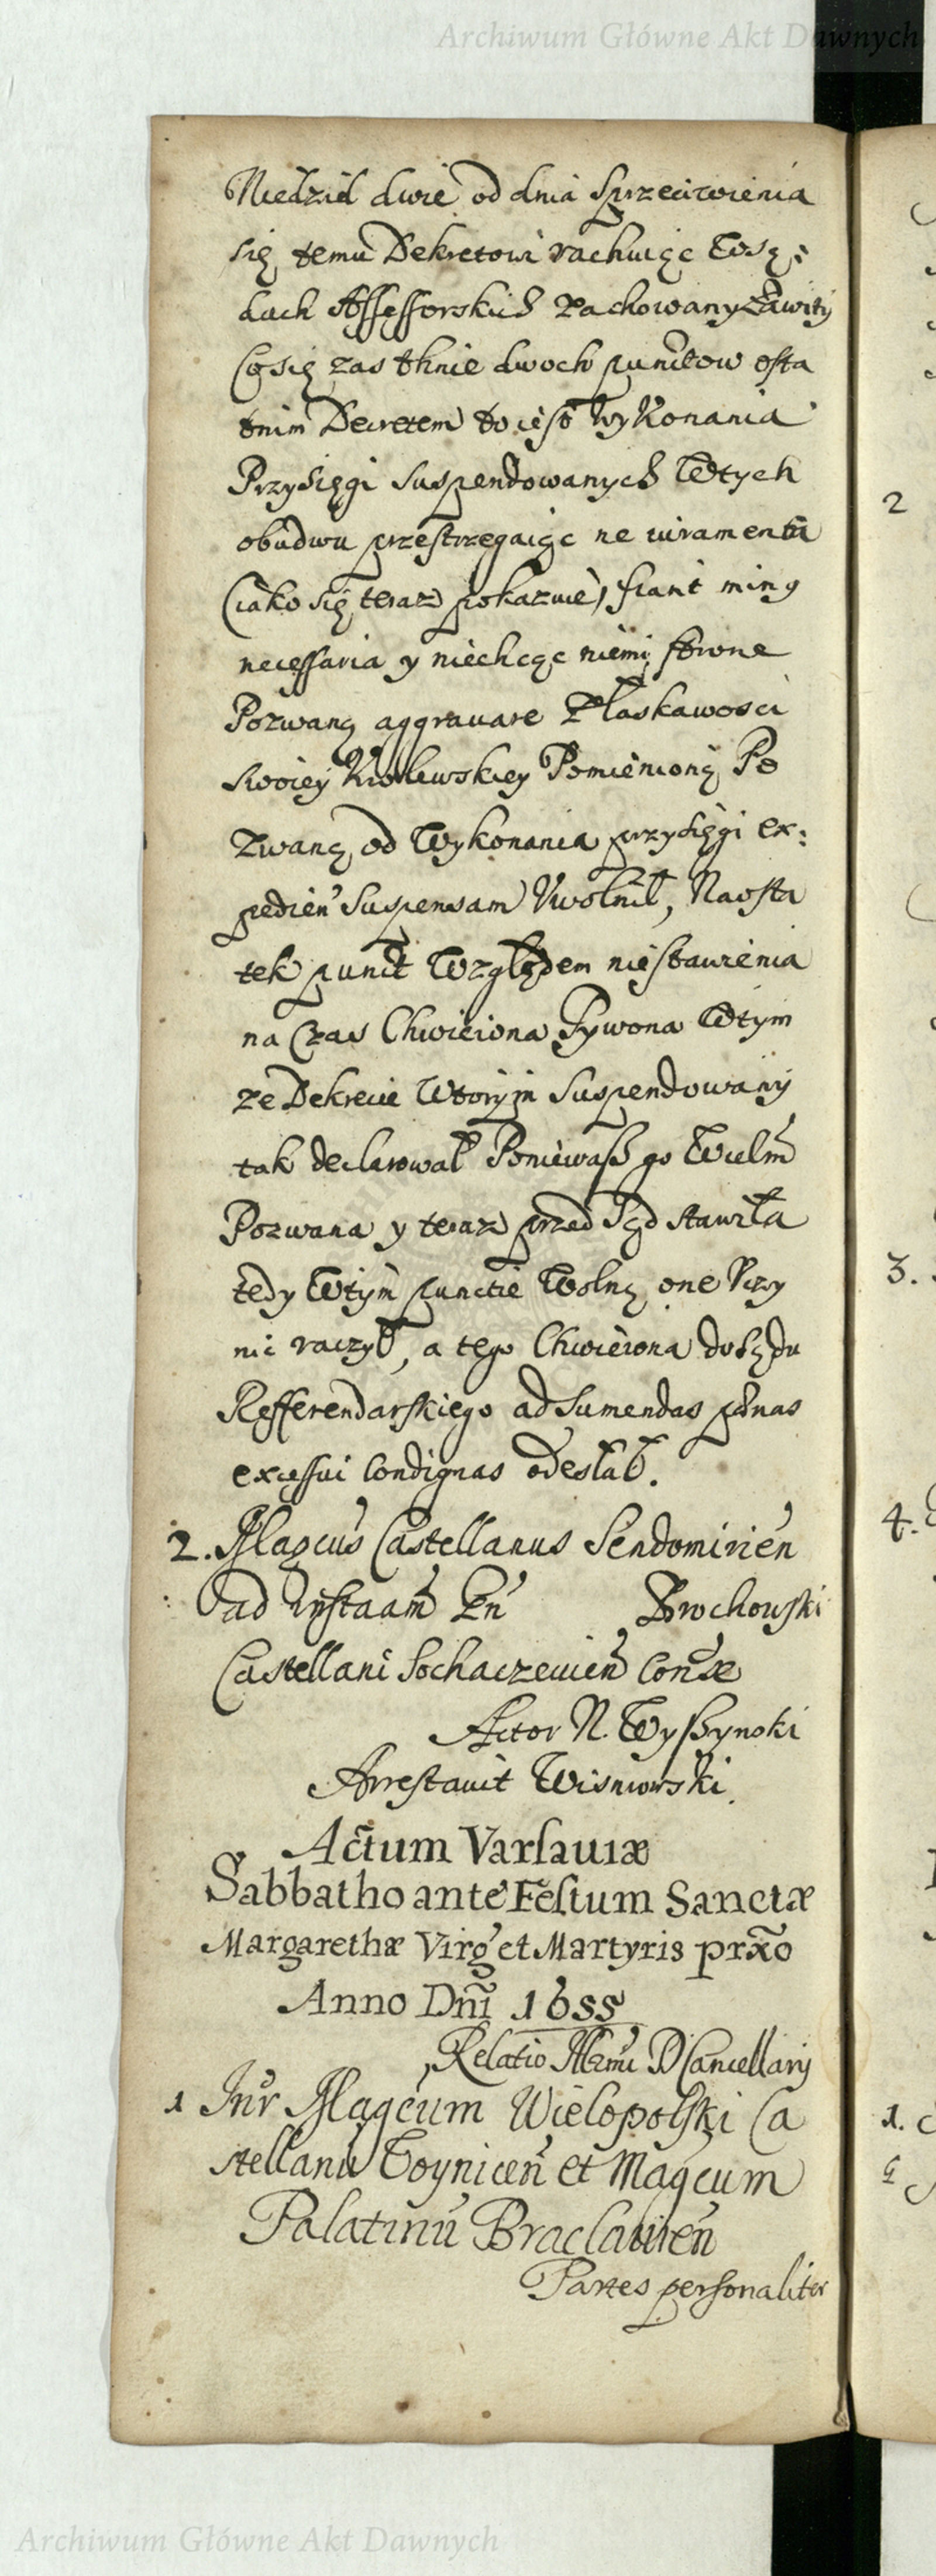 Archiwum Główne Akt Dawnych
Niedziel dwie od dnia Sprzeciwienia
się temu Dekretowi rachuiąc Wsą:
dach Assessorskich zachowany zawity
Co się zas tknie dwoch punctow osta
tnim Decretem to iest wykonania
Przysięgi suspendowanych Wtych
obudwu przestrzegaiąc ne iuramenta
(iako się teraz pokazuie) fiant minus
necessaria y niechcąc niemi strone
Pozwaną aggravare Złaskawosci
swoiey Krolewskiey Pomienioną Po
zwaną od Wykonania przysięgi ex:
pedien Suspensam Vwolnił, Naosta
tek punct Względem niestawienia
na Czas Chwieiona Pywona Wtym
ze Dekrecie Wtorym Suspendowany
tak declarował Poniewasz go Wielm
Pozwana y teraz przed Sąd stawiła
tedy Wtym punctie Wolną one Vczy
nic raczył, a tego Chwieiona do Sądu
Refferendarskiego ad sumendas pænas
excessui condignas odesłał.
2. Magcus Castellanus Sendomirien
ad instaam Gn Brochowski
Castellani Sochaczewien Conse
Actor N. Wyszynski
Arrestavit Wisniowski.
Actum Varsaviæ
Sabbatho ante Festum Sanctæ
Margarethæ Virg et Martyris prxo
Anno Dni 1655
Relatio Illmi D Cancellarij
1 Inr Magcum Wielopolski Ca
stellanu Woynicen et Magcum
Palatinu Braclavien
Partes personaliter
2
3.
4.
1.
Archiwum Główne Akt Dawnych